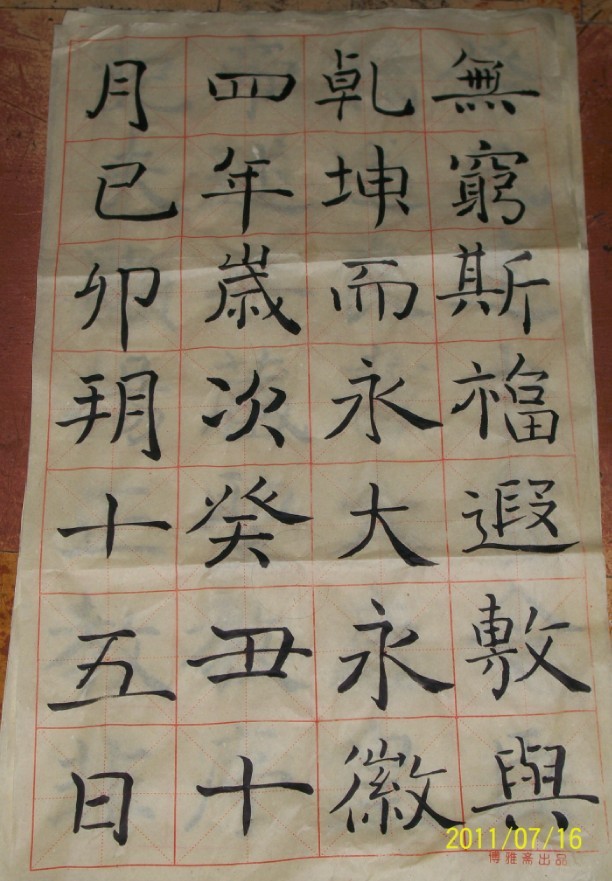 無窮斯福遐敷與
乹坤而永大永徽
四年歲次癸丑十
月己卯朔十五日
2011/07/16
博雅斋出品